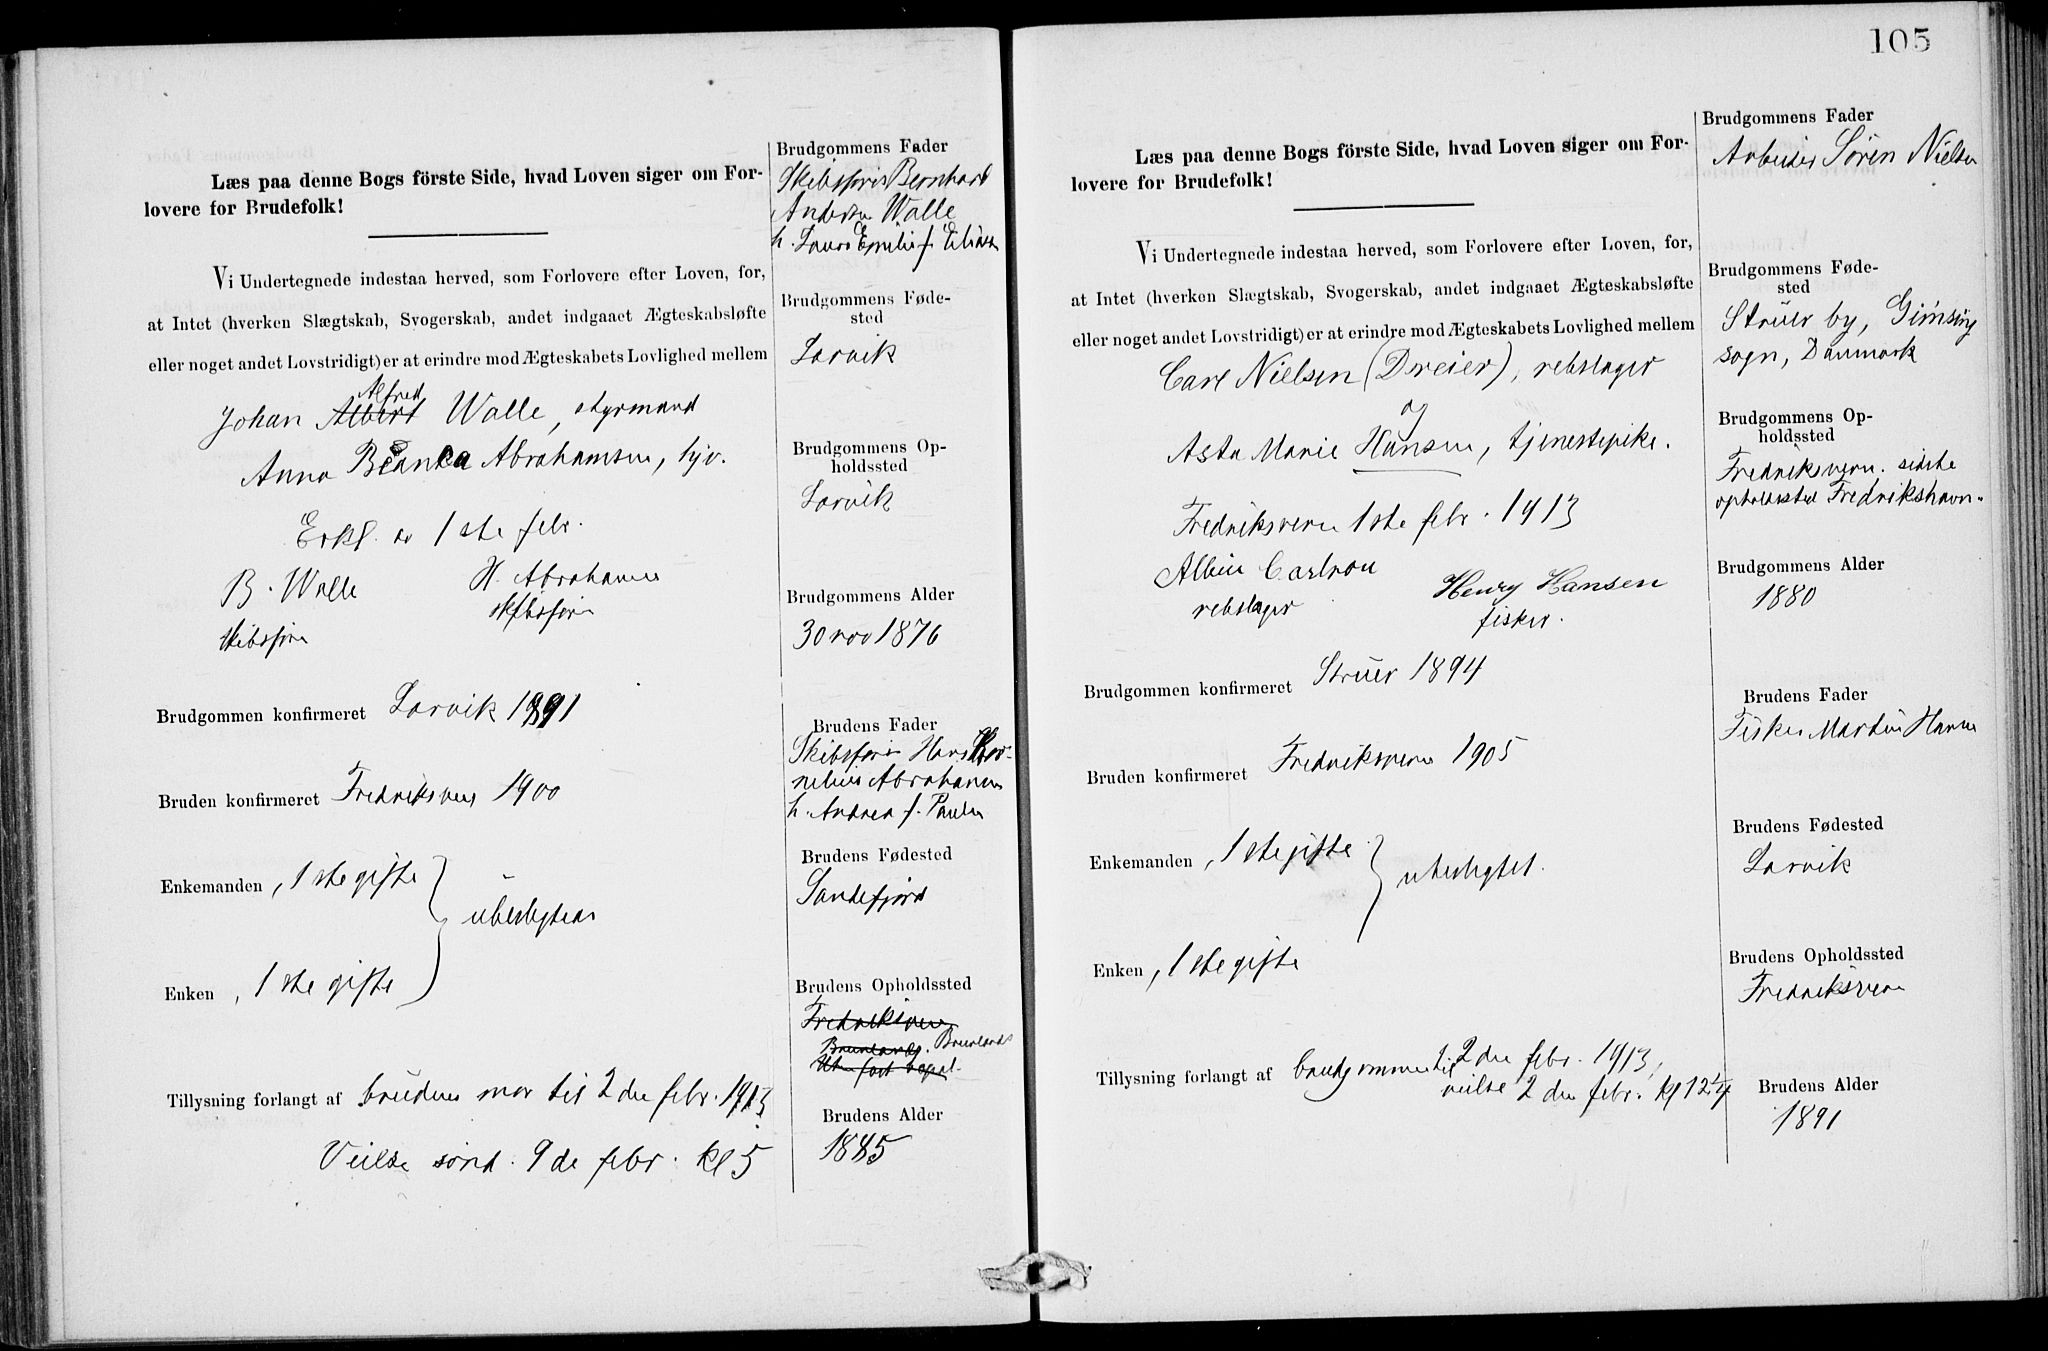 Læs paa denne Bogs förste Side, hvad Loven siger om For-
lovere for Brudefolk!
Vi Undertegnede indestaa herved, som Forlovere efter Loven, for,
at Intet (hverken Slægtskab, Svogerskab, andet indgaaet Ægteskabsløfte
eller noget andet Lovstridigt) er at erindre mod Ægteskabets Lovlighed mellem
Alfred
Johan Albert Walle, styrmand
Anna Blanka Abrahamsen, hjv.
Erkl. av 1ste febr.
B. Walle H. Abrahamsen
skibsfører skibsfører
Brudgommen konfirmeret Larvik 1891
Bruden konfirmeret Fredriksvern 1900
Enkemanden, 1ste gifte
ubeslegtede
Enken, 1ste gifte
Tillysning forlangt af brudens mor til 2den febr. 1913
Vielse sönd. 9de febr. kl 5
Brudgommens Fader
Skibsfører Bernhard
Andersen Walle
h. Laura Emilie f. Eliasen
Brudgommens Føde-
sted
Larvik
Brudgommens Op-
holdssted
Larvik
Brudgommens Alder
30 nov 1876
Brudens Fader
Skibsfører Hans Kor-
nelius Abrahamsen
h. Andrea f. Paulsen
Brudens Fødested
Sandefjord
Brudens Opholdssted
Fredriksvern
Brunlanes. Brunlanes
Brudens Alder
1885
105
Læs paa denne Bogs förste Side, hvad Loven siger om For-
lovere for Brudefolk!
Vi Undertegnede indestaa herved, som Forlovere efter Loven, for,
at Intet (hverken Slægtskab, Svogerskab, andet indgaaet Ægteskabsløfte
eller noget andet Lovstridigt) er at erindre mod Ægteskabets Lovlighed mellem
Carl Nielsen (Dreier), rebslager
og
Asta Marie Hansen, tjenestepike.
Fredriksvern 1ste febr. 1913
Albin Carlson
rebslager
Henry Hansen
fisker.
Brudgommen konfirmeret Struer 1894
Bruden konfirmeret Fredriksvern 1905
Enkemanden, 1ste gifte
ubeslegtet.
Enken, 1ste gifte
Tillysning forlangt af brudgommen til 2den febr. 1913,
vielse 2den febr. kl 12 1/4
Brudgommens Fader
Arbeider Sören Nielsen
Brudgommens Føde-
sted
Struer by, Gimsing
sogn, Danmark
Brudgommens Op-
holdssted
Fredriksvern. sidste
opholdssted Fredrikshavn.
Brudgommens Alder
1880
Brudens Fader
Fisker Martin Hansen
Brudens Fødested
Larvik
Brudens Opholdssted
Fredriksvern
Brudens Alder
1891